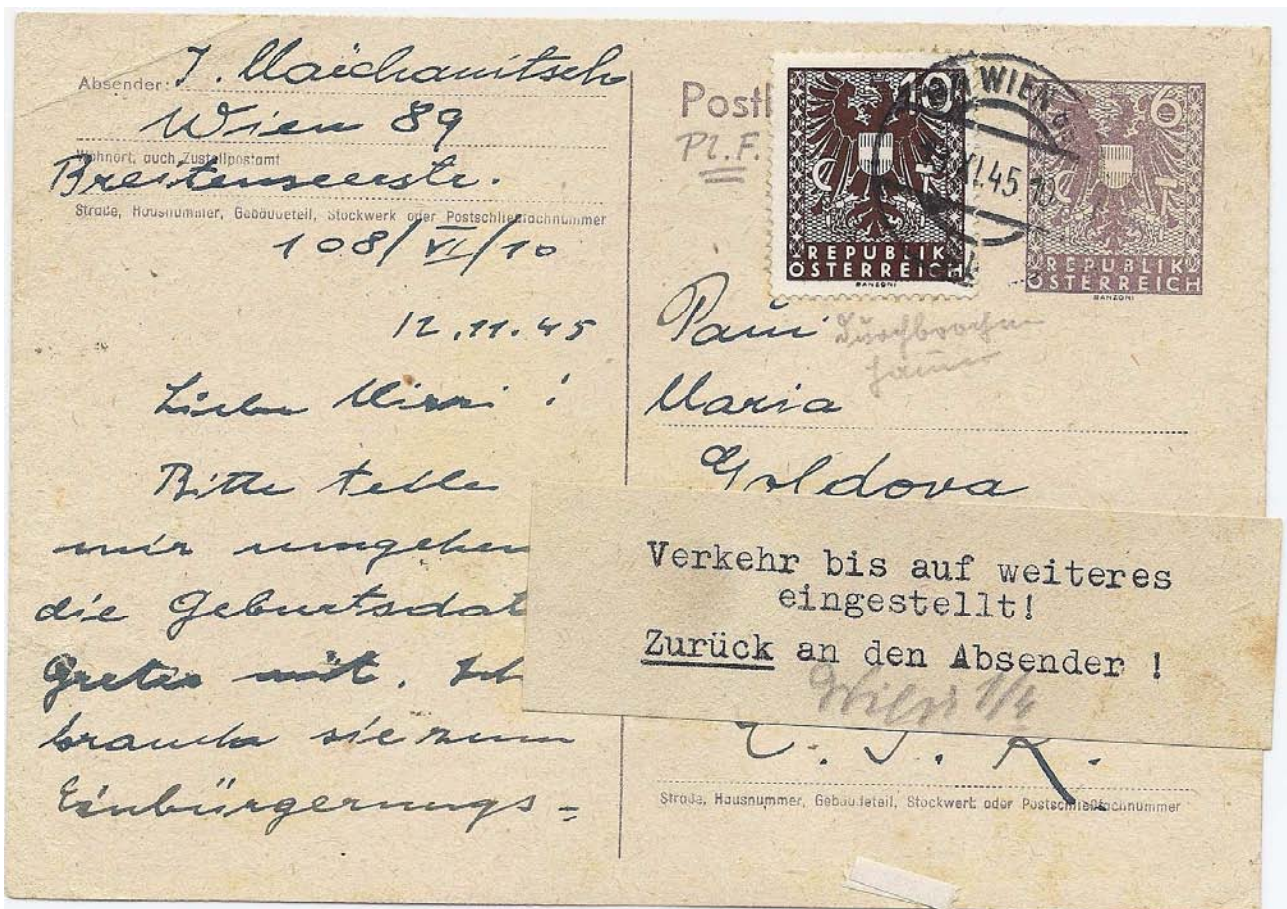 Absender: J. Maichanitsch
Wien 89
Wohnort, auch Zustellpostamt
Breitenseerstr.
Straße, Hausnummer, Gebäudeteil, Stockwerk oder Postschließfachnummer
108/VI/10
12.11.45
Liebe Mizzi!
Bitte teile
mir umgehen
die Geburtsdat
Gretes mit. Ich
brauche sie zum
Einbürgerungs-
Post
Pl. F.
10
REPUBLIK
ÖSTERREICH
RANZONI
WIEN
XI.45
6
REPUBLIK
ÖSTERREICH
RANZONI
Maria
Goldova
Verkehr bis auf weiteres
eingestellt!
Zurück an den Absender !
Č. S. R.
Straße, Hausnummer, Gebäudeteil, Stockwerk oder Postschließfachnummer